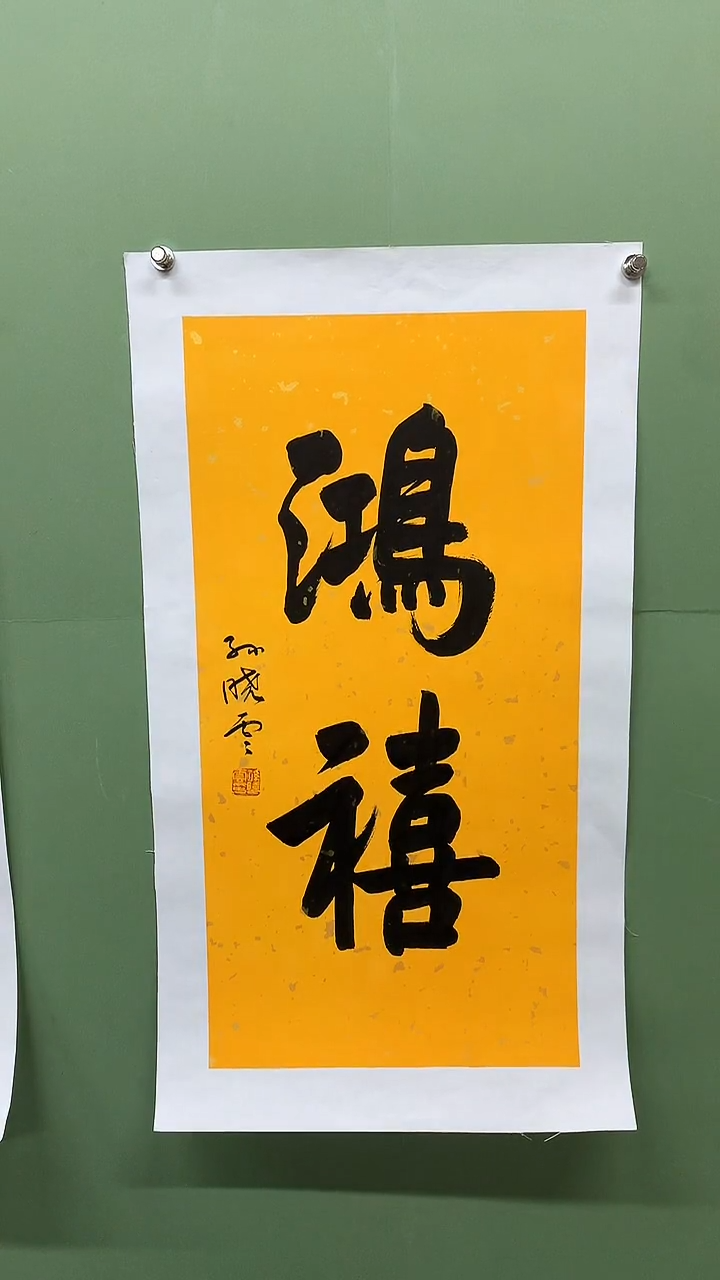 鴻禧
孙晓云